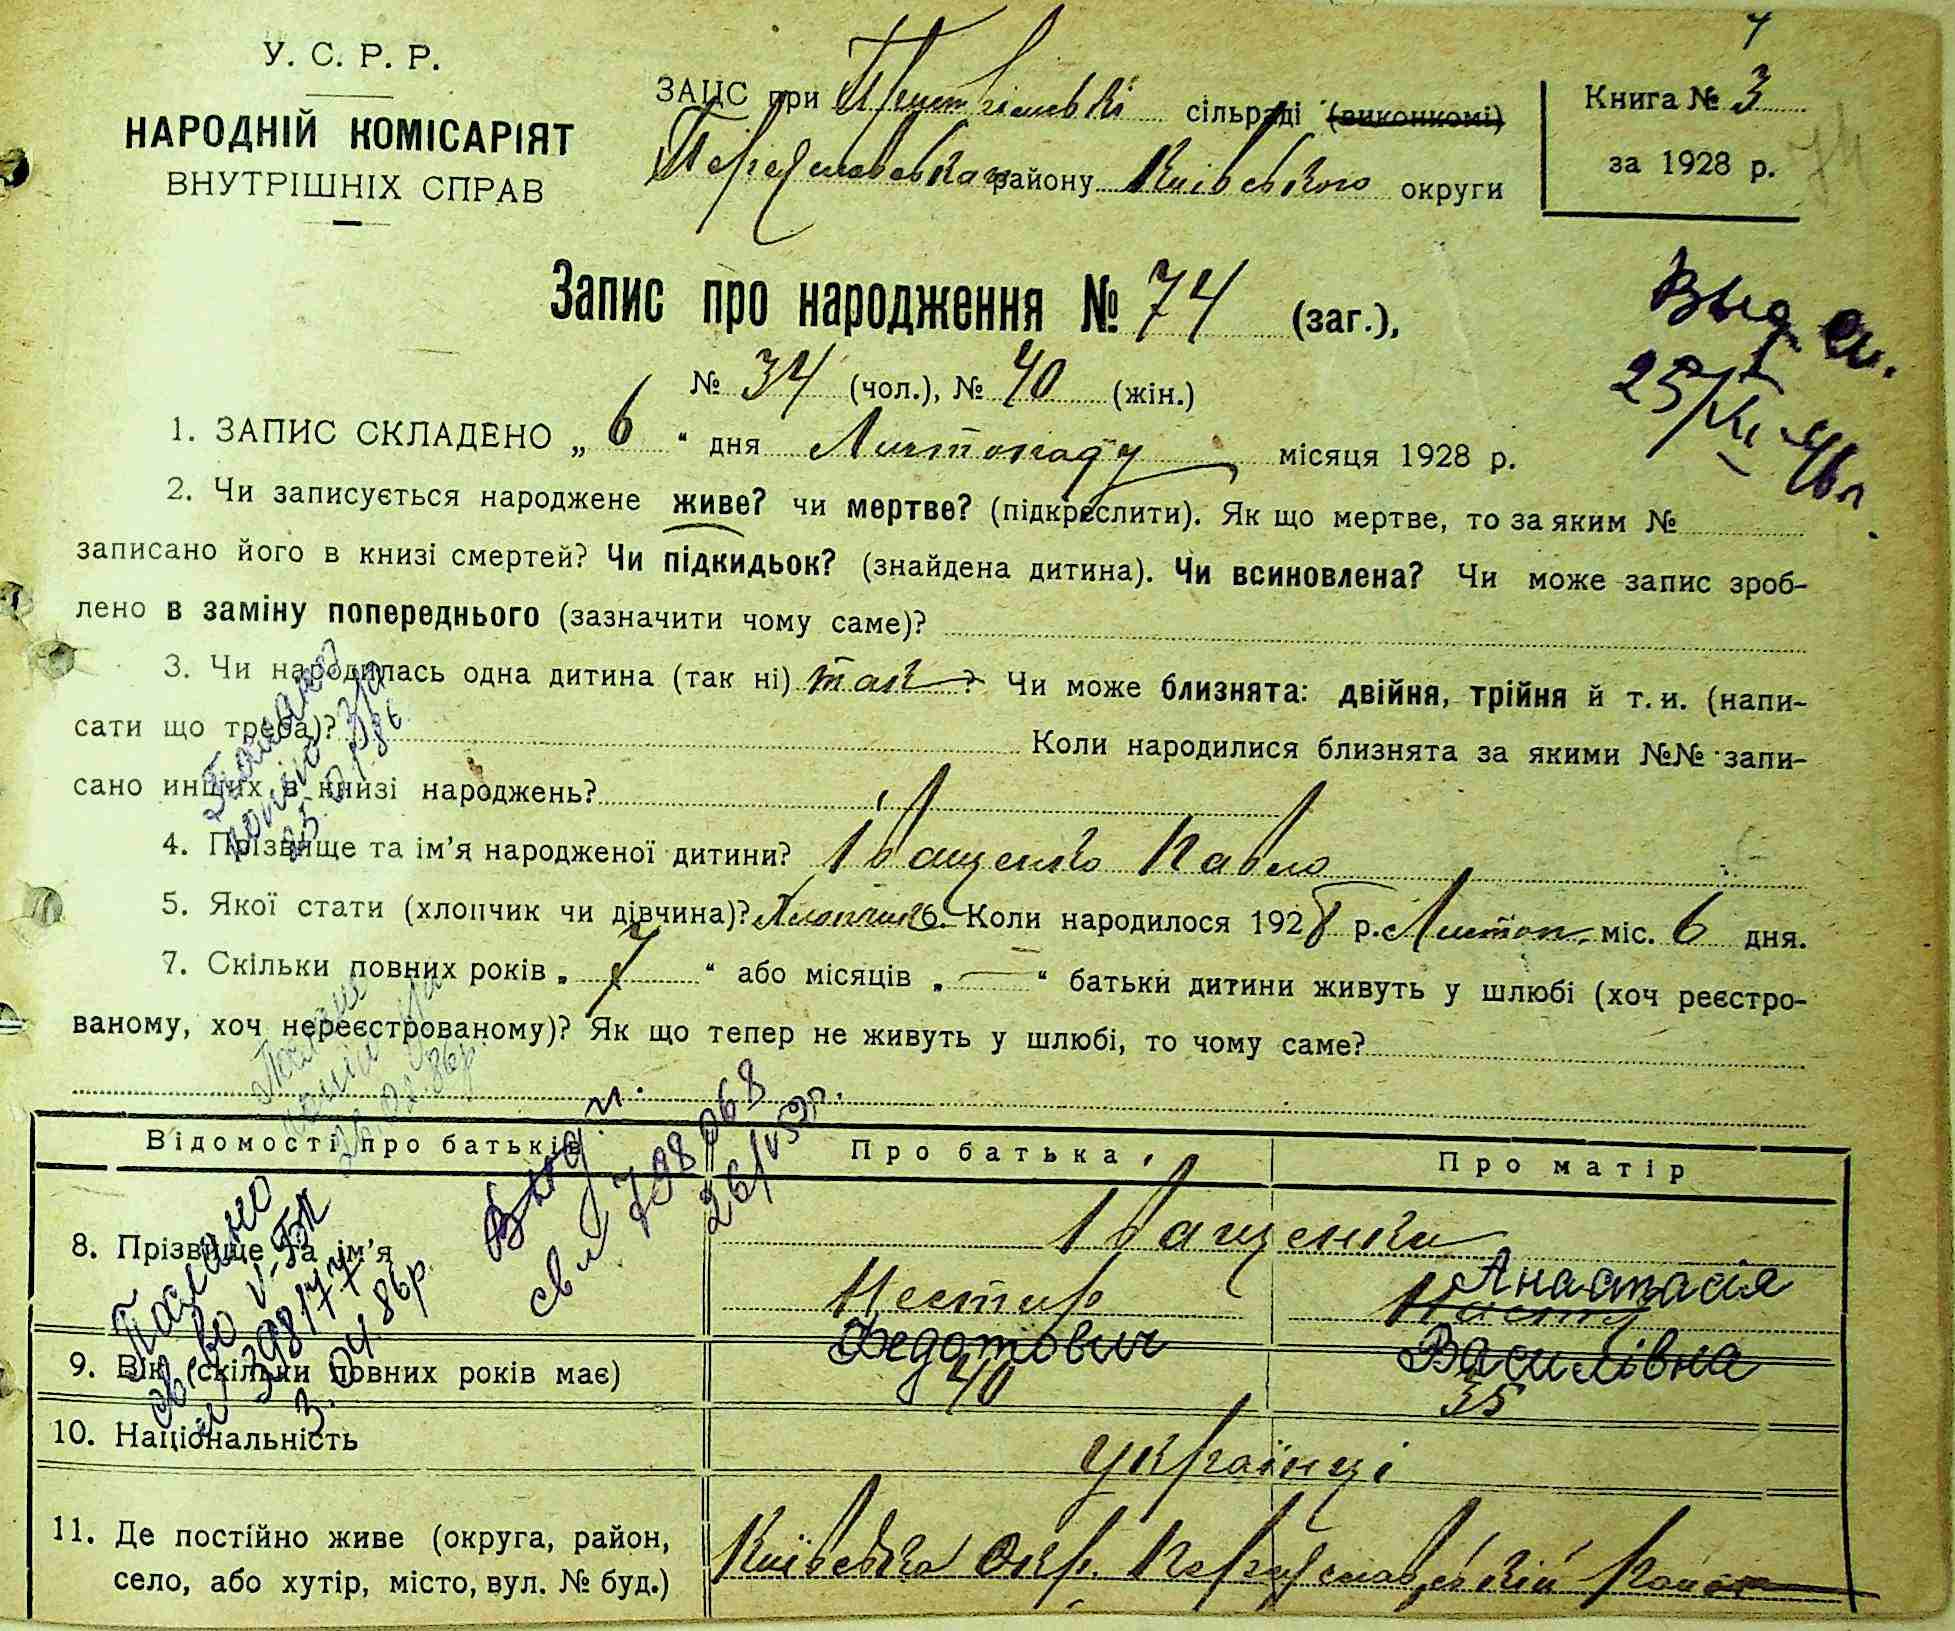 У. С. Р. Р.
НАРОДНІЙ КОМІСАРІЯТ
ВНУТРІШНІХ СПРАВ
ЗАЦС при сільраді (виконкомі)
Переяславського району Київського округи
Книга № 3
за 1928 р.
74
Запис про народження № 74 (заг.),
№ 34 (чол.), № 40 (жін.)
Выд. св.
25/VI-46 г.
1. ЗАПИС СКЛАДЕНО „ 6 “ дня Листопаду місяця 1928 р.
2. Чи записується народжене живе? чи мертве? (підкреслити). Як що мертве, то за яким №
записано його в книзі смертей? Чи підкидьок? (знайдена дитина). Чи всиновлена? Чи може запис зроб-
лено в заміну попереднього (зазначити чому саме)?
3. Чи народилась одна дитина (так ні) так? Чи може близнята: двійня, трійня й т. и. (напи-
сати що треба)? Коли народилися близнята за якими №№ запи-
сано инших в книзі народжень?
4. Прізвище та ім’я народженої дитини? Іващенко Павло
5. Якої стати (хлопчик чи дівчина)? Хлопчик 6. Коли народилося 1928 р. Листоп. міс. 6 дня.
7. Скільки повних років „ 7 “ або місяців „ — “ батьки дитини живуть у шлюбі (хоч реєстро-
ваному, хоч нереєстрованому)? Як що тепер не живуть у шлюбі, то чому саме?
Відомості про батьків
Про батька
Про матір
8. Прізвище та ім’я
Іващенки
Нестир
Федотович
Настя
Анастасія
Василівна
9. Вік (скільки повних років має)
40
35
10. Національність
Українці
11. Де постійно живе (округа, район,
село, або хутір, місто, вул. № буд.)
Київська Окр. Переяславський район
Послано
св-во V-БК
№ 398177
3.04.86р.
Выд.
св 708068
26/V59г.